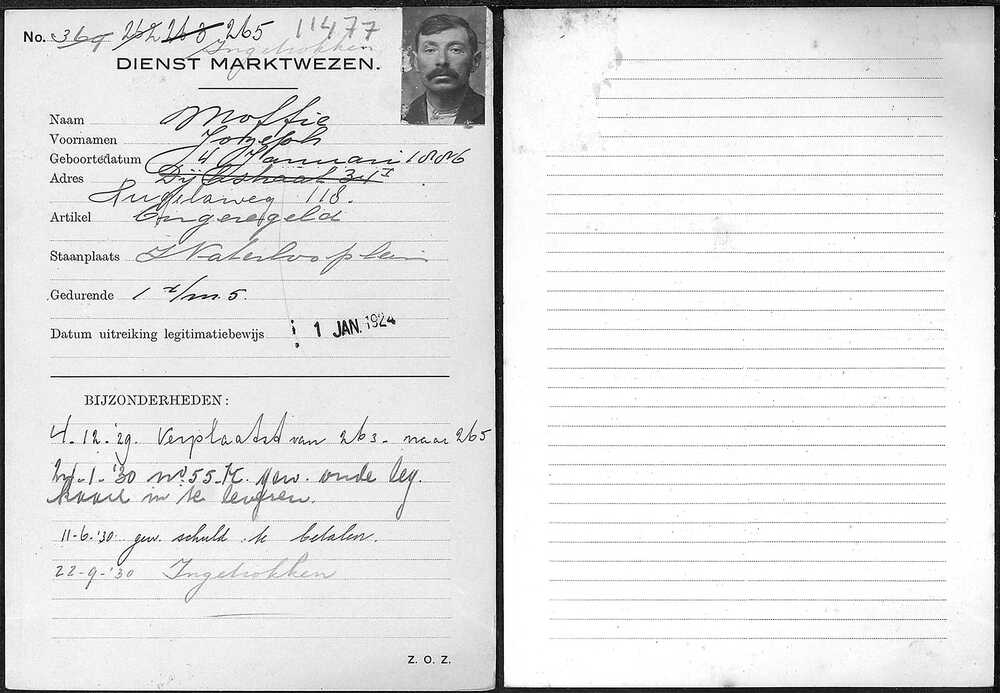 No. 369 262 268 265 11477
Ingetrokken
DIENST MARKTWEZEN.
Naam Moffie
Voornamen Joseph
Geboortedatum 4 Januari 1886
Adres 34 I
118.
Artikel Ongeregeld
Staanplaats Waterlooplein
Gedurende 1 x/m. 5.
Datum uitreiking legitimatiebewijs 1 JAN. 1924
BIJZONDERHEDEN:
4-12-'29. Verplaatst van 263 - naar 265
24-1-'30 no 55 K. gew. oude leg.
kaart in te leveren.
11-6-'30 gew. schuld te betalen.
22-9-'30 Ingetrokken
Z. O. Z.